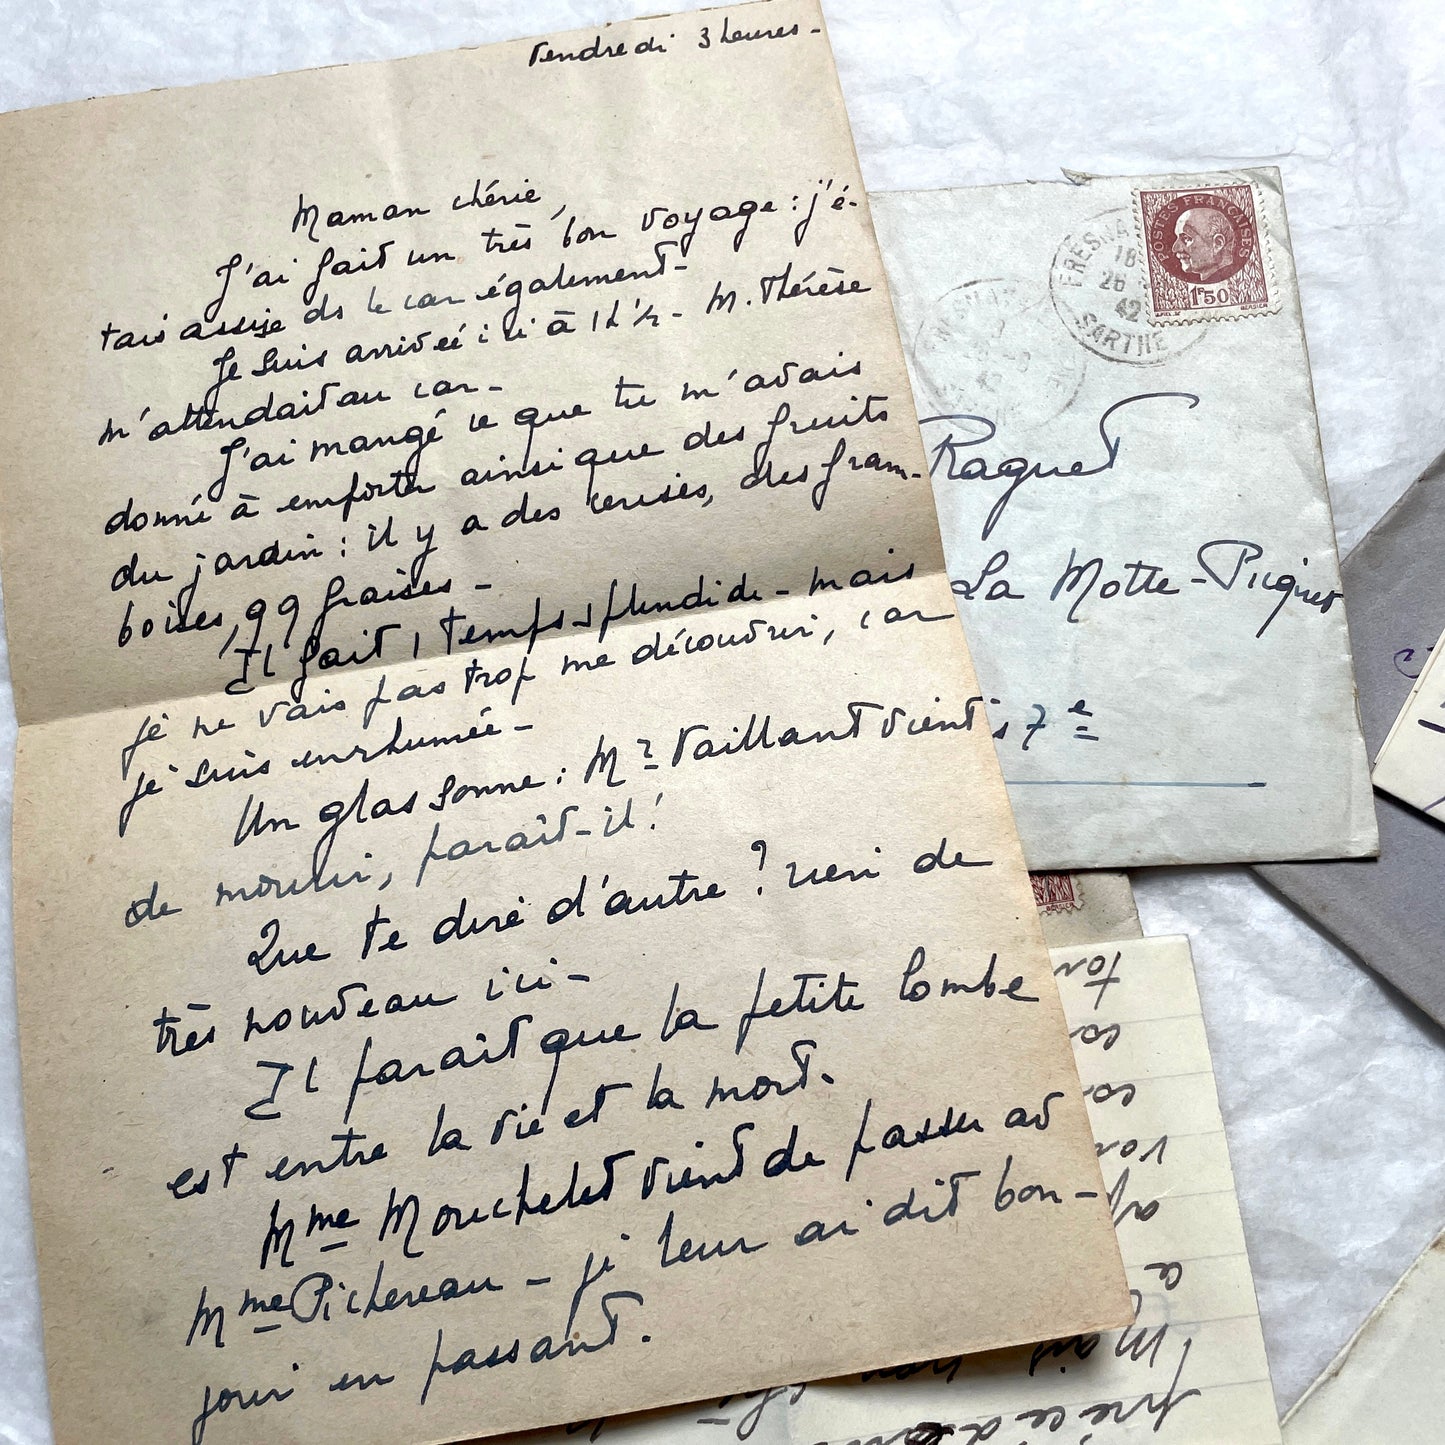 Vendredi 3 heures -
Maman chérie,
J'ai fait un très bon voyage : j'é-
tais assise ds le car également -
Je suis arrivée ici à 1h ½ - M. Thérèse
m'attendait au car -
J'ai mangé ce que tu m'avais
donné à emporter ainsi que des fruits
du jardin : il y a des cerises, des fram-
boises, qq fraises -
Il fait 1 temps splendide - mais
je ne vais pas trop me découvrir, car
je suis enrhumée -
Un glas sonne : Mr Vaillant vient
de mourir, paraît-il !
Que te dire d'autre ? rien de
très nouveau ici -
Il paraît que la petite Lombe
est entre la vie et la mort.
Mme Mouchelet vient de passer av
Mme Pichereau - je leur ai dit bon-
jour en passant.
POSTES FRANÇAISES
1F50
FRESNA
18
26
42
SARTHE
Raguet
La Motte-Picquet
s 7e
ton
a
Mais